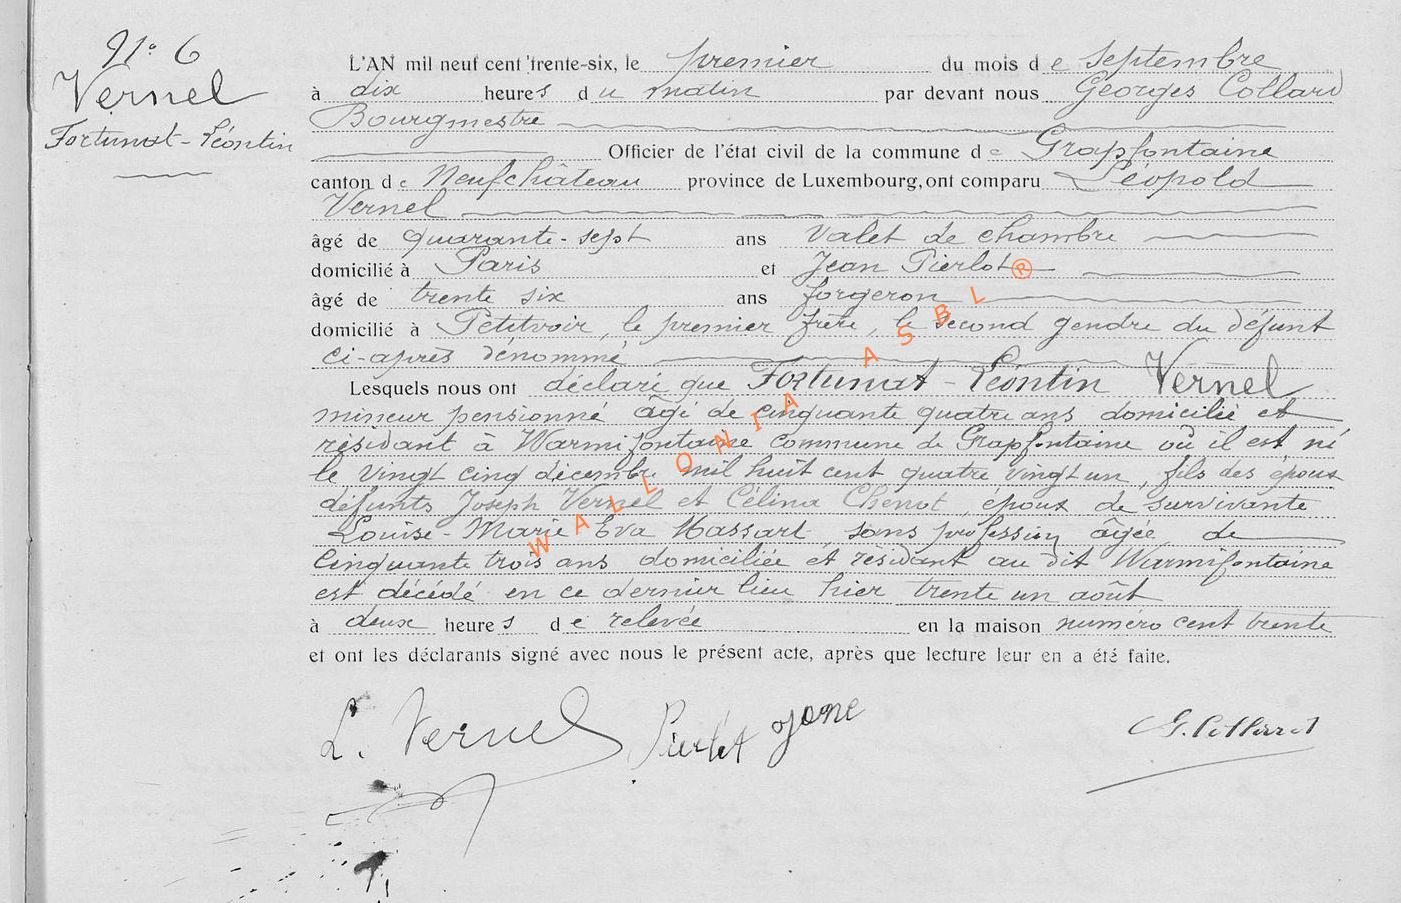 N° 6
Vernel
Fortunat-Léontin
L'AN mil neuf cent trente-six, le premier du mois de septembre
à dix heures du matin par devant nous Georges Collard
Bourgmestre
Officier de l'état civil de la commune de Grapfontaine
canton de Neufchâteau province de Luxembourg, ont comparu Léopold
Vernel
âgé de quarante-sept ans valet de chambre
domicilié à Paris et Jean Pierlot
âgé de trente six ans forgeron
domicilié à Petitvoir, le premier frère, le second gendre du défunt
ci-après dénommé
Lesquels nous ont déclaré que Fortunat-Léontin Vernel
mineur pensionné âgé de cinquante quatre ans domicilié et
résidant à Warmifontaine commune de Grapfontaine où il est né
le vingt cinq décembre mil huit cent quatre vingt un, fils des époux
défunts Joseph Vernel et Célina Chenot, époux de survivante
Louise-Marie Eva Massart, sans profession âgée de
cinquante trois ans domiciliée et résidant au dit Warmifontaine
est décédé en ce dernier lieu hier trente un août
à deux heures de relevée en la maison numéro cent trente
et ont les déclarants signé avec nous le présent acte, après que lecture leur en a été faite.
L. Vernel Pierlot G. Collard
WALLONIA ASBL ®